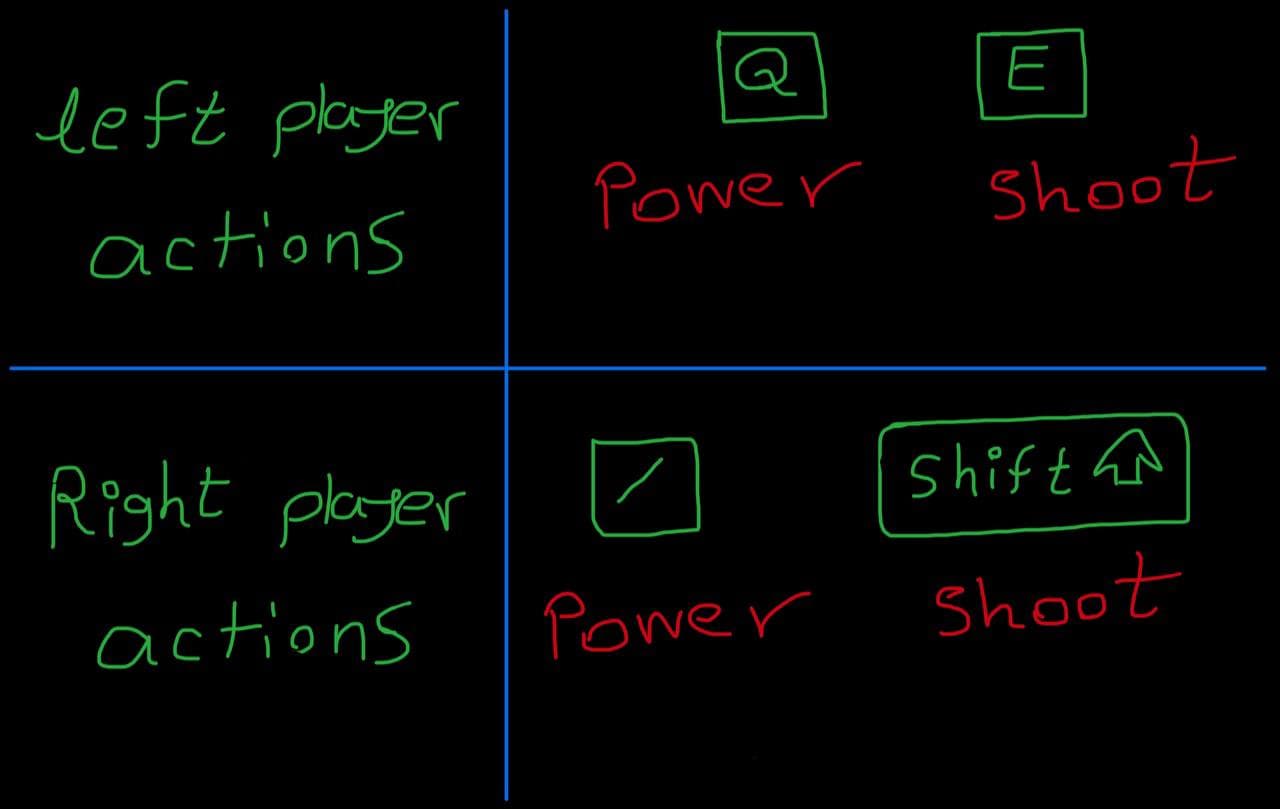 left player
actions
Q E
Power Shoot
Right player
actions
/ Shift
Power Shoot